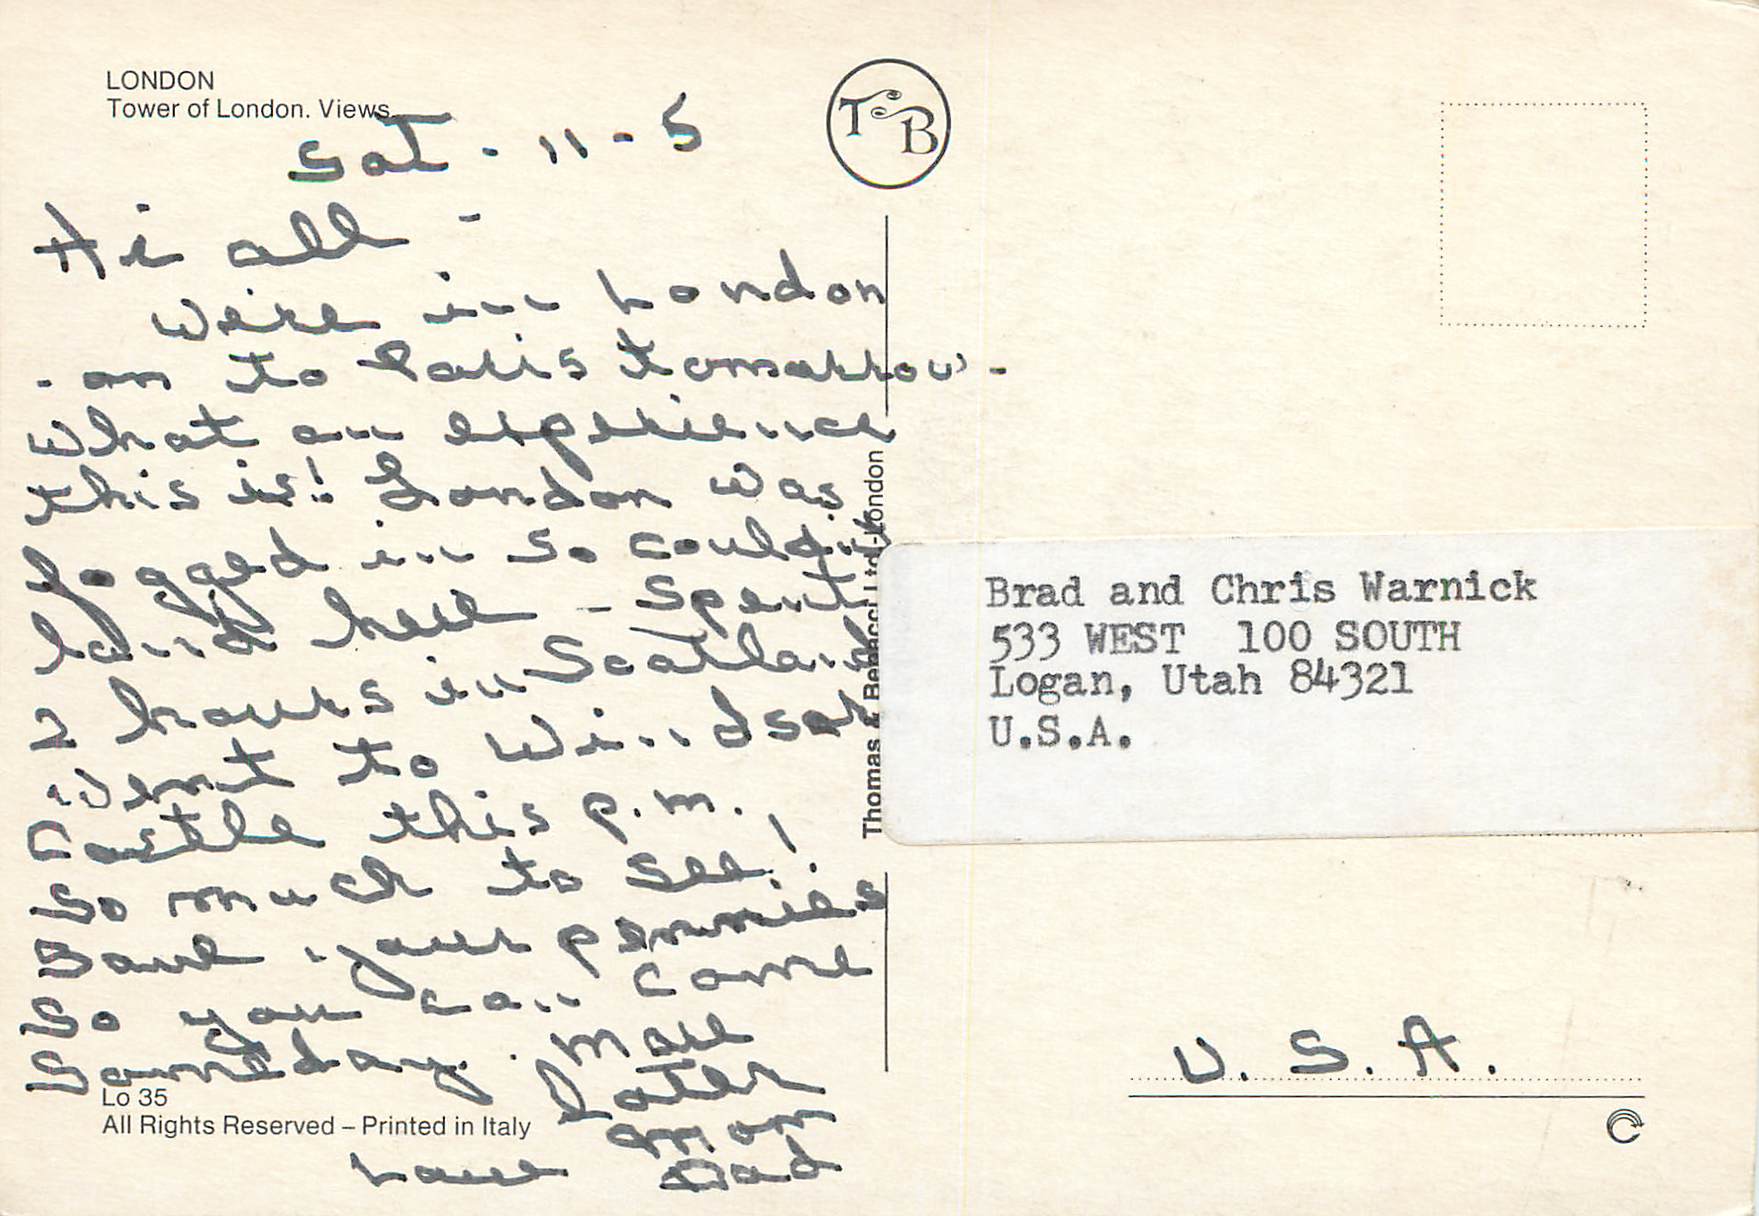 LONDON
Tower of London. Views
Sat - 11 - 5
Hi all -
We're in London
- on to Paris tomorrow -
What an experience
this is! London was
fogged in so couldn't
land here - Spent
2 hours in Scotland
Went to Windsor
Castle this p.m.
So much to see!
Save your pennies
So you can come
Someday. More
later
Love Mom
Dad
Lo 35
All Rights Reserved – Printed in Italy
TB
Thomas & Benacci Ltd-London
Brad and Chris Warnick
533 WEST 100 SOUTH
Logan, Utah 84321
U.S.A.
U.S.A.